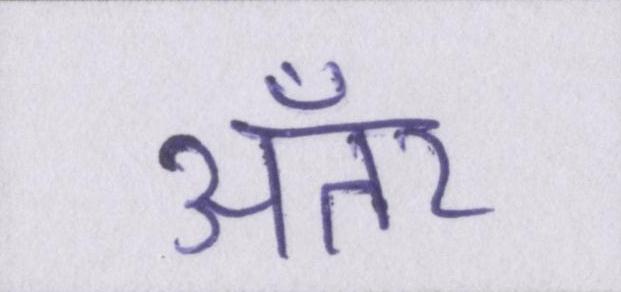 अँतर